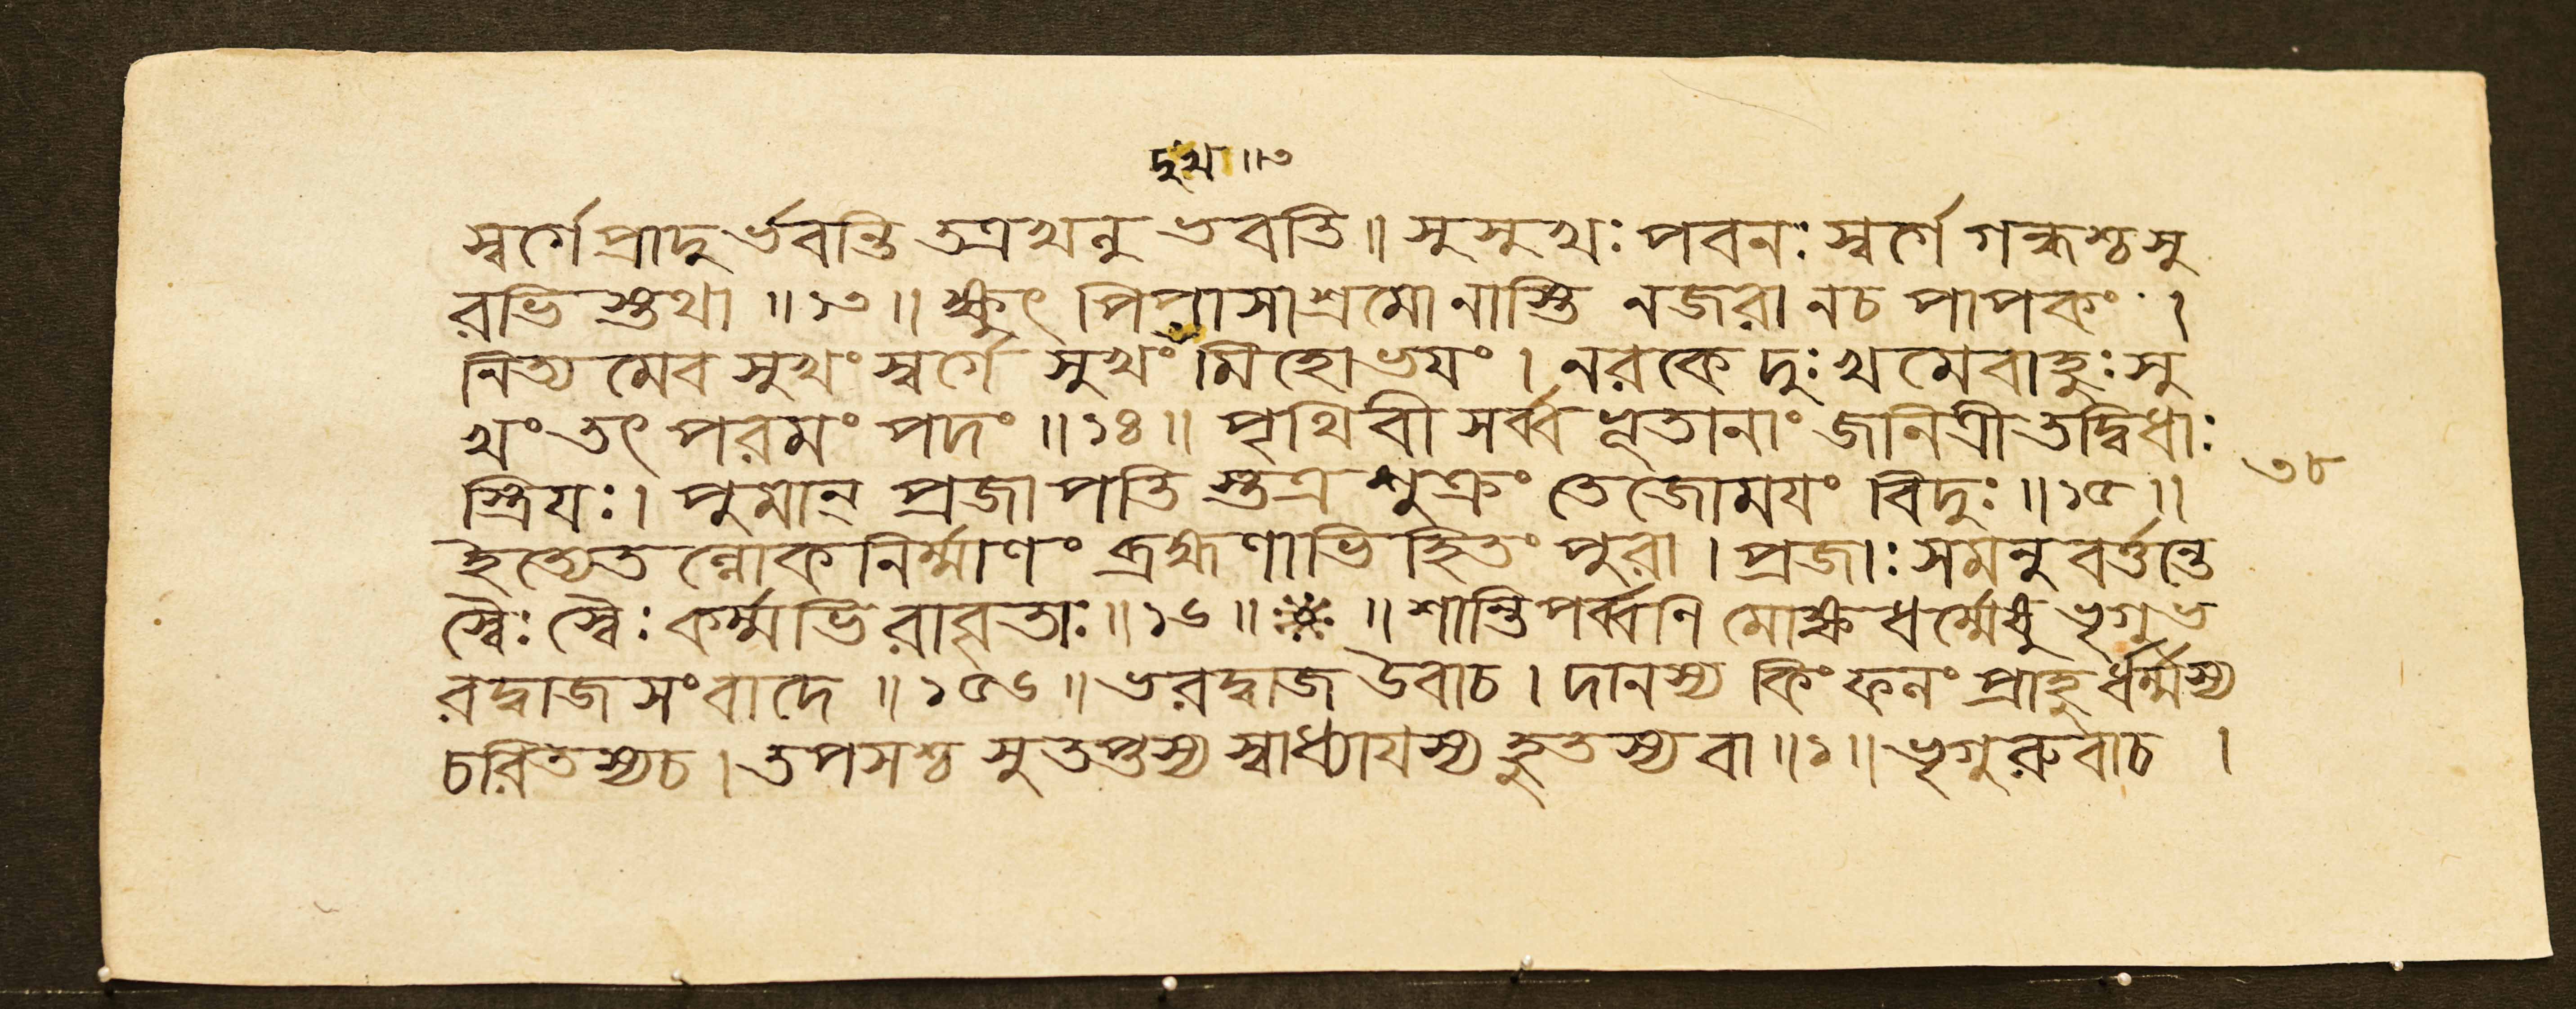 দুখ ॥৩
স্বর্গে প্রাদু র্ভবন্তি তত্রখনু ভবতি ॥ সুসুখঃ পবনঃ স্বর্গে গন্ধশ্চ সু
রভি স্তথা ॥ ১৩ ॥ ক্ষুৎ পিপাসাশ্রমো নাস্তি নজরা নচ পাপকং ।
নিত্য মেব সুখং স্বর্গে সুখং মিহোভয়ং । নরকে দুঃখমেবাহুঃ সু
খং তৎ পরমং পদং ॥ ১৪ ॥ পৃথিবী সর্ব্ব ভূতানাং জনিত্রী তদ্বিধাঃ
স্ত্রিয়ঃ । পুমান্ প্রজাপতি স্তত্র শুক্রং তেজোময়ং বিদুঃ ॥ ১৫ ॥
৩৮
ইত্যেত ল্লোক নির্ম্মাণং ব্রহ্মণাভি হিতং পুরা । প্রজাঃ সমনু বর্ত্তন্তে
স্বৈঃ স্বৈঃ কর্ম্মভি রাবৃতাঃ ॥ ১৬ ॥ ※ ॥ শান্তি পর্ব্বনি মোক্ষ ধর্ম্মেষু ভৃগু ভ
রদ্বাজ সংবাদে ॥ ১৫৬ ॥ ভরদ্বাজ উবাচ । দানস্য কিং ফলং প্রাহু র্ধর্ম্মস্য
চরিতস্যচ । তপসশ্চ সুতপ্তস্য স্বাধ্যায়স্য হুতস্য বা ॥ ১ ॥ ভৃগুরুবাচ ।